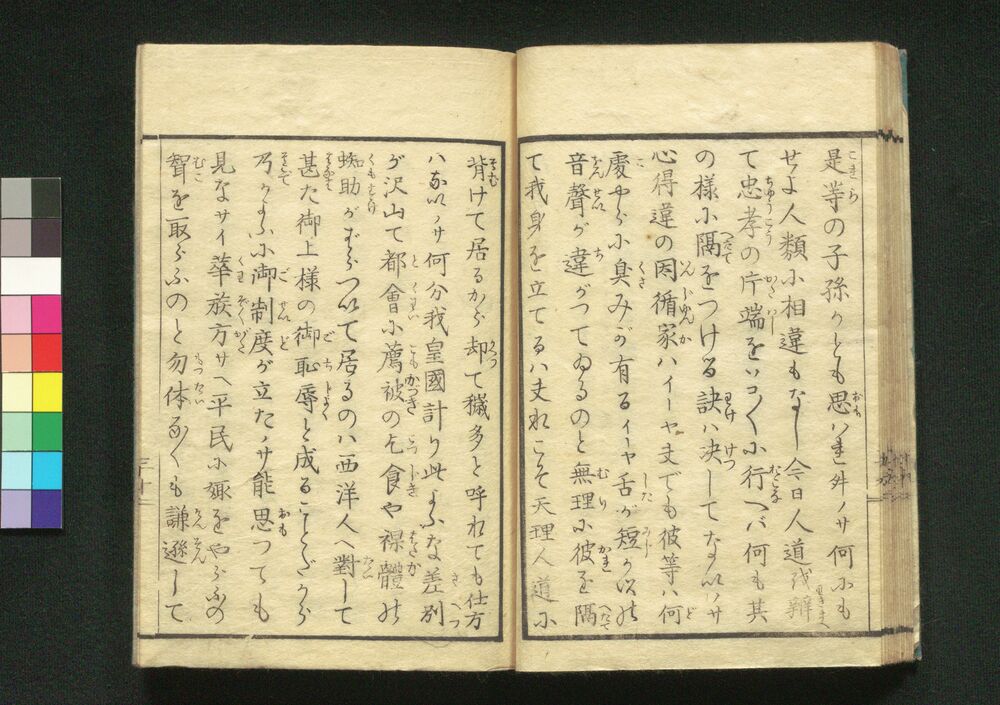 是等の子孫かとも思ハれ升ノサ何にも
せよ人類に相違もなし今日人道を辨
て忠孝の片端をいコく小行へバ何も其
の様に隔をつける訣ハ決してない、サ
心得違の因循家ハイーヤ丈でも彼等ハ何
處やらに臭みが有るイーヤ舌が短かいの
音聲が違がつてゐるのと無理に彼を隔
て我身を立てるハ丈れこそ天理人道に
背けて居るから却て穢多と呼れても仕方
ハないハサ何分我皇國計り此よふな差別
が沢山て都會に薦被の乞食や裸體の
蜘助がぶらつひて居るのハ西洋人へ對して
甚た御上様の御恥辱と成ることだから
乃かよふに御制度が立たノサ能思つても
見なサイ華族方サヘ平民に娵をやらふの
聟を取らふのと勿体なくも謙遜して